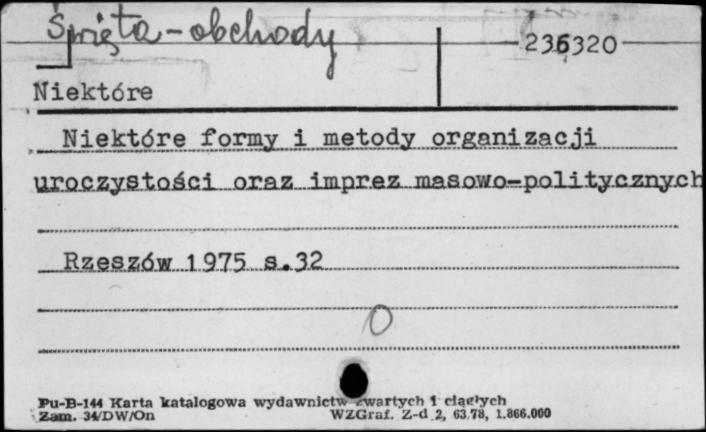 Święta - obchody
236320
Niektóre
Niektóre formy i metody organizacji
uroczystości oraz imprez masowo-politycznych
Rzeszów 1975 s.32
O
Pu-B-144 Karta katalogowa wydawnictw zwartych i ciągłych
Zam. 34/DW/On WZGraf. Z-d 2, 63.78, 1.866.000